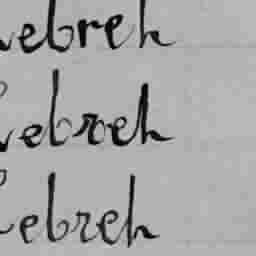 ebreh
ebreh
ebreh